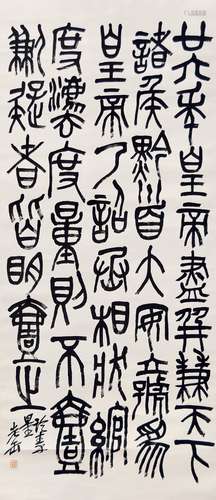 廿六年皇帝盡并兼天下
諸侯黔首大安立號為
皇帝乃詔丞相狀綰
度灋度量則不壹
歉疑者皆明壹之
老缶